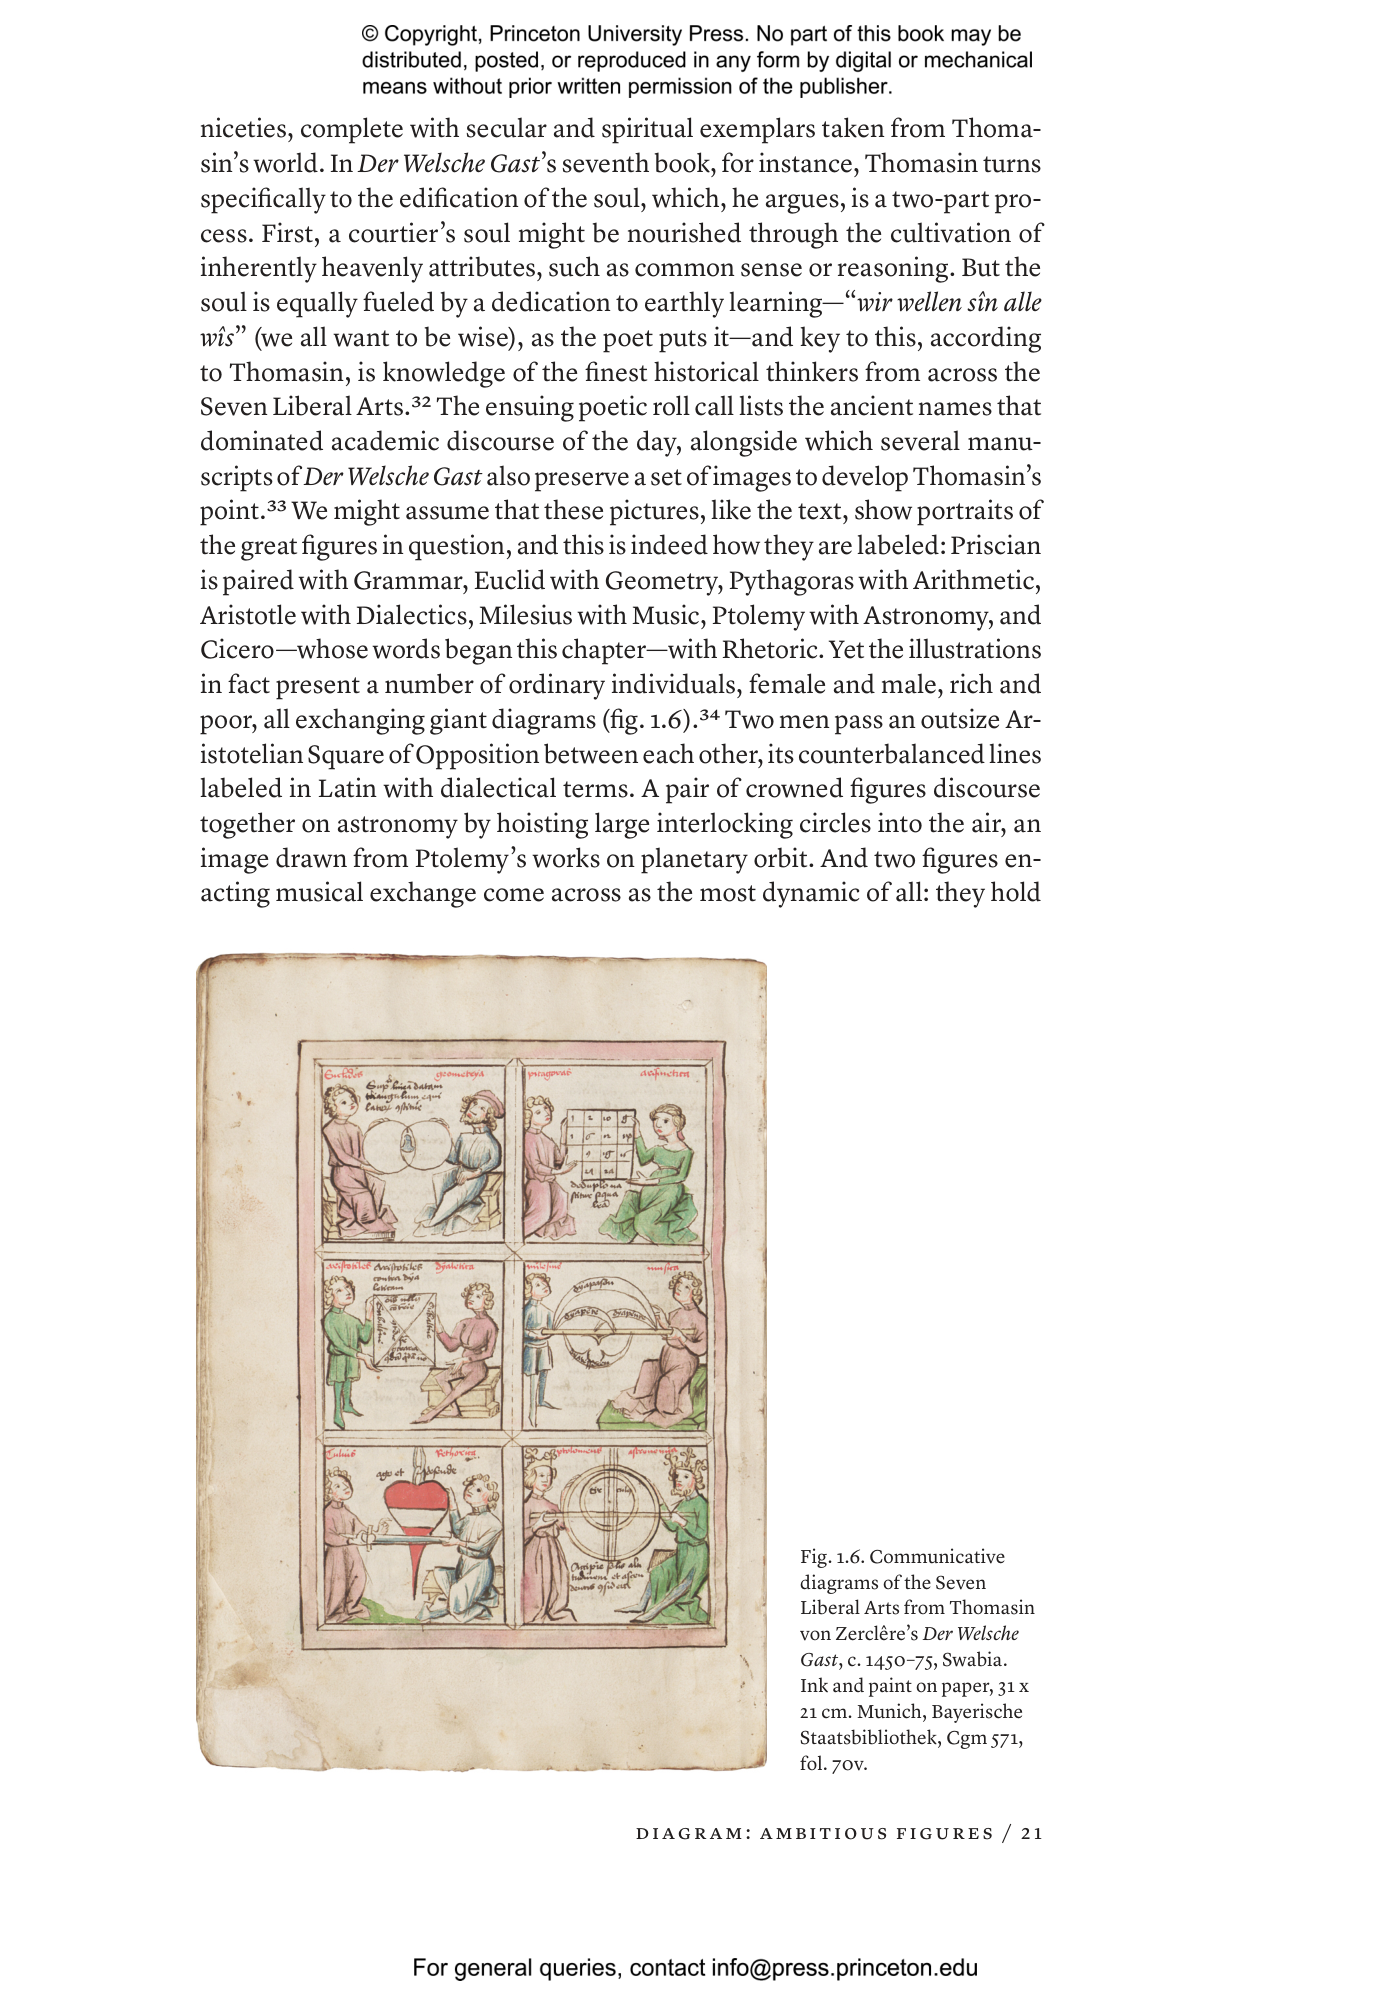 © Copyright, Princeton University Press. No part of this book may be
distributed, posted, or reproduced in any form by digital or mechanical
means without prior written permission of the publisher.
niceties, complete with secular and spiritual exemplars taken from Thoma-
sin’s world. In Der Welsche Gast’s seventh book, for instance, Thomasin turns
specifically to the edification of the soul, which, he argues, is a two-part pro-
cess. First, a courtier’s soul might be nourished through the cultivation of
inherently heavenly attributes, such as common sense or reasoning. But the
soul is equally fueled by a dedication to earthly learning—“wir wellen sîn alle
wîs” (we all want to be wise), as the poet puts it—and key to this, according
to Thomasin, is knowledge of the finest historical thinkers from across the
Seven Liberal Arts.³² The ensuing poetic roll call lists the ancient names that
dominated academic discourse of the day, alongside which several manu-
scripts of Der Welsche Gast also preserve a set of images to develop Thomasin’s
point.³³ We might assume that these pictures, like the text, show portraits of
the great figures in question, and this is indeed how they are labeled: Priscian
is paired with Grammar, Euclid with Geometry, Pythagoras with Arithmetic,
Aristotle with Dialectics, Milesius with Music, Ptolemy with Astronomy, and
Cicero—whose words began this chapter—with Rhetoric. Yet the illustrations
in fact present a number of ordinary individuals, female and male, rich and
poor, all exchanging giant diagrams (fig. 1.6).³⁴ Two men pass an outsize Ar-
istotelian Square of Opposition between each other, its counterbalanced lines
labeled in Latin with dialectical terms. A pair of crowned figures discourse
together on astronomy by hoisting large interlocking circles into the air, an
image drawn from Ptolemy’s works on planetary orbit. And two figures en-
acting musical exchange come across as the most dynamic of all: they hold
geometrya
pitagoras
aristotiles Aristotiles
musica
Tulius
ptolomeus
Fig. 1.6. Communicative
diagrams of the Seven
Liberal Arts from Thomasin
von Zerclêre’s Der Welsche
Gast, c. 1450–75, Swabia.
Ink and paint on paper, 31 x
21 cm. Munich, Bayerische
Staatsbibliothek, Cgm 571,
fol. 70v.
DIAGRAM: AMBITIOUS FIGURES / 21
For general queries, contact info@press.princeton.edu